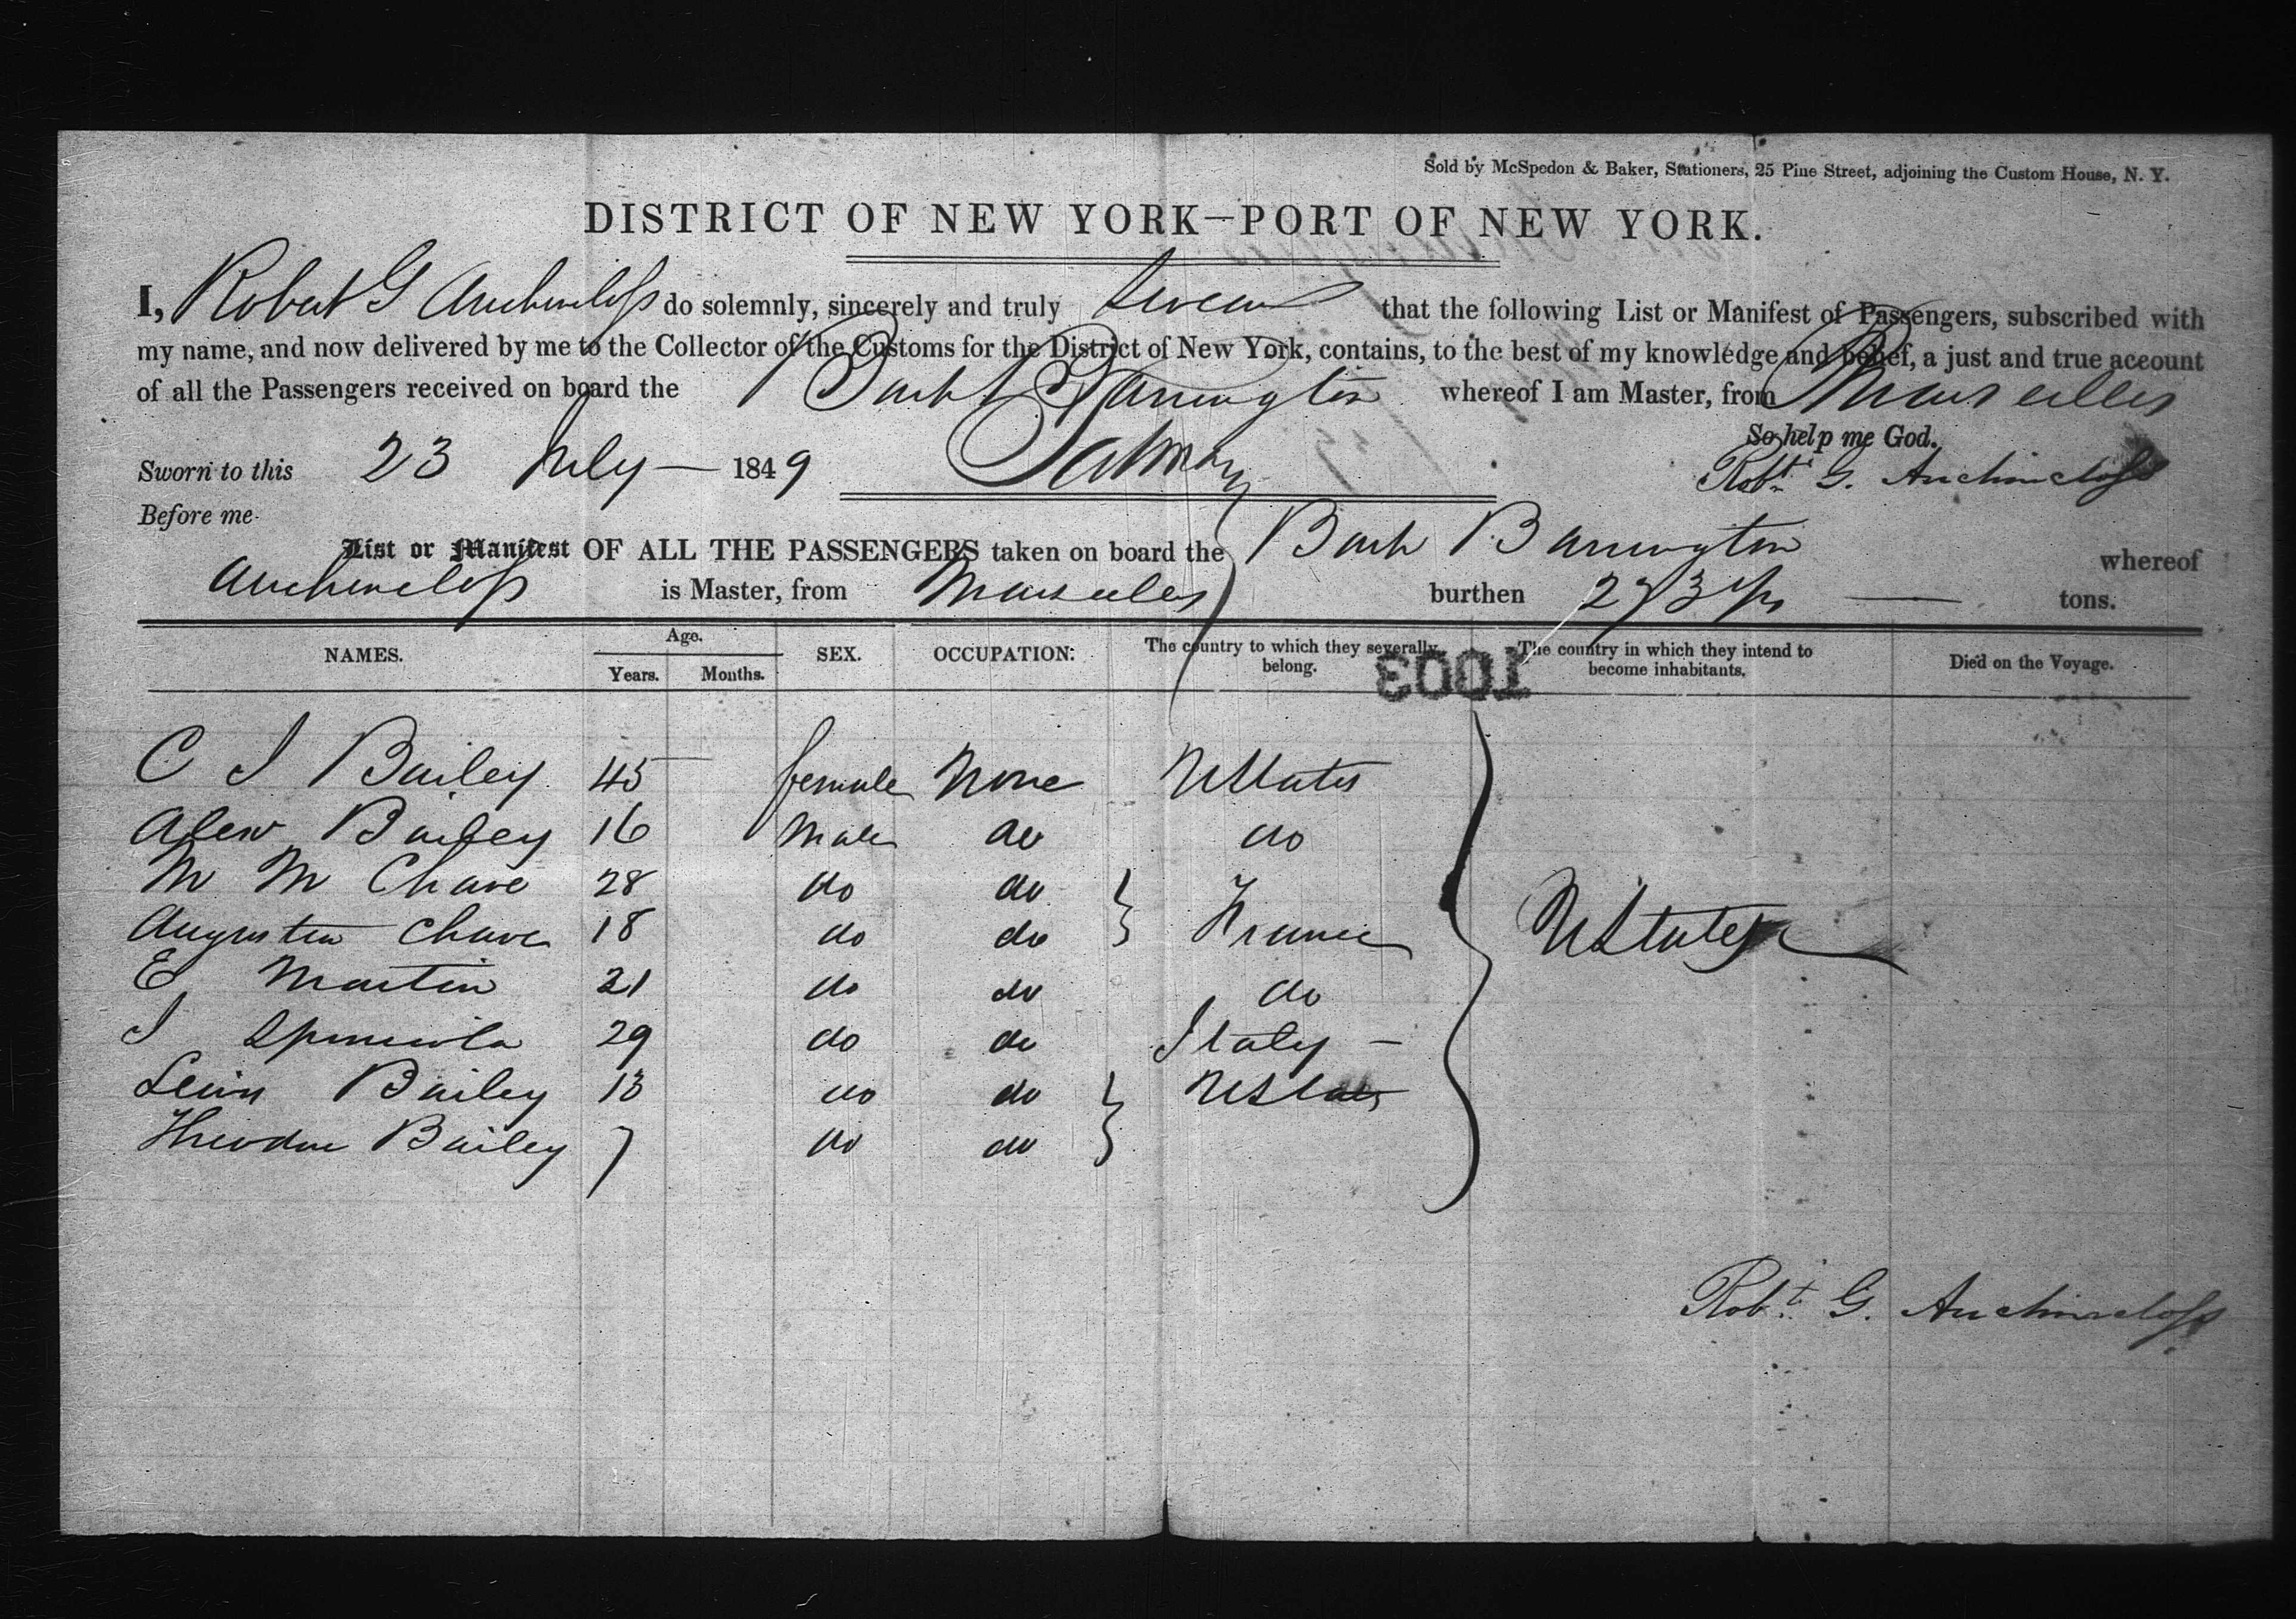 Sold by McSpedon & Baker, Stationers, 25 Pine Street, adjoining the Custom House, N. Y.
DISTRICT OF NEW YORK—PORT OF NEW YORK.
I, Robert G Auchincloss do solemnly, sincerely and truly swear that the following List or Manifest of Passengers, subscribed with
my name, and now delivered by me to the Collector of the Customs for the District of New York, contains, to the best of my knowledge and belief, a just and true account
of all the Passengers received on board the Bark Barrington whereof I am Master, from Marseilles
So help me God.
Sworn to this 23 July 1849 Robt. G. Auchincloss
Before me
List or Manifest OF ALL THE PASSENGERS taken on board the Bark Barrington whereof
Auchincloss is Master, from Marseilles burthen tons.
NAMES. Age. Years. Months. SEX. OCCUPATION. The country to which they severally belong. The country in which they intend to become inhabitants. Died on the Voyage.
1003
C I Bailey 45 female None UStates
Alew Bailey 16 Male do do
M M Chave 28 do do
Augustin Chave 18 do do France UStates
E Martin 21 do do do
I 29 do do Italy —
Lewis Bailey 13 do do UStates
Theodore Bailey 7 do do
Robt. G. Auchincloss